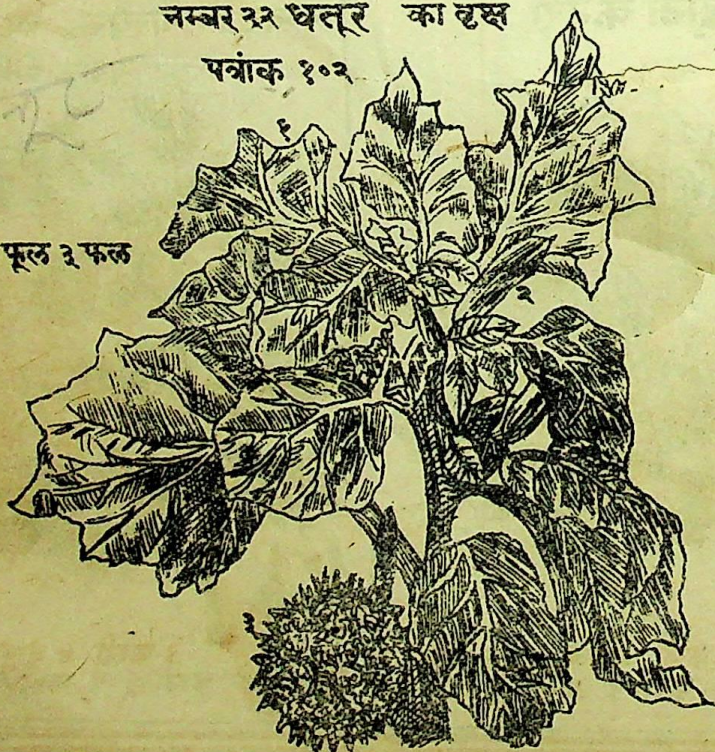 नम्बर २२ धतूर का वृक्ष
पत्रांक १०२
१
फूल ३ फल
२
३